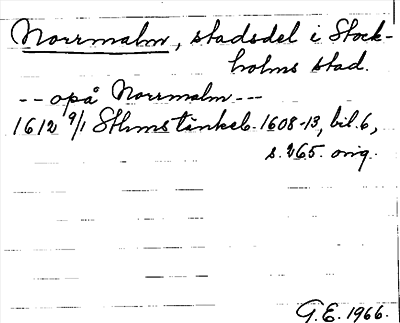 Norrmalm, stadsdel i Stock-
holms stad.
-- opå Norrmalm ---
1612 9/1 Sthms tänkeb. 1608-13, bil. 6,
s. 265. orig.
G.E. 1966.